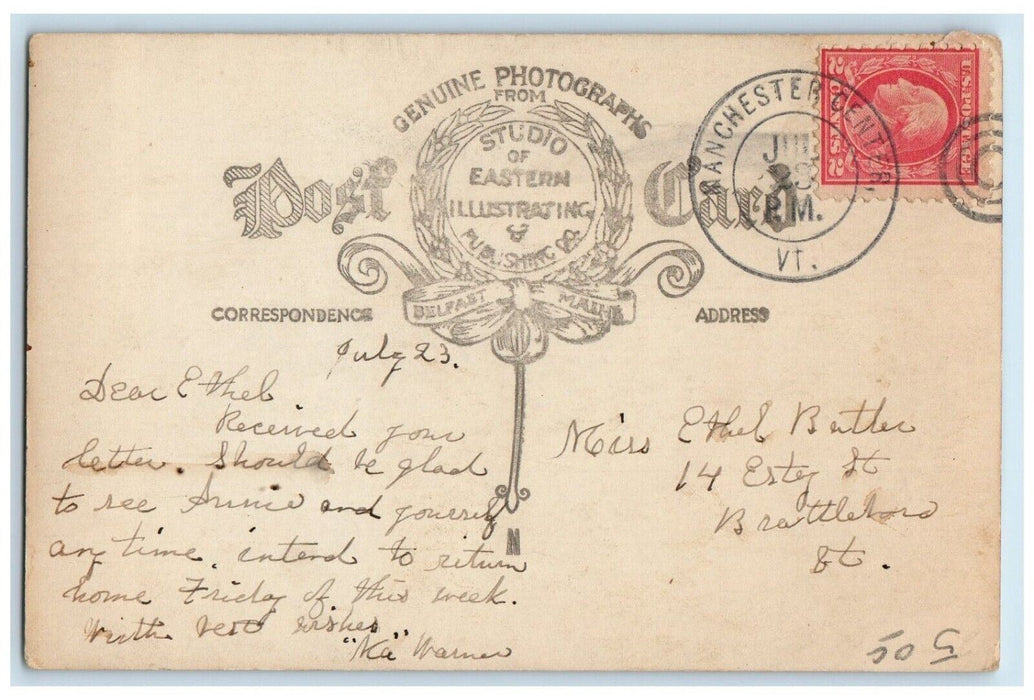 GENUINE PHOTOGRAPHS
FROM
STUDIO
OF
EASTERN
ILLUSTRATING
&
PUBLISHING CO.
BELFAST MAINE
Post Card
CORRESPONDENCE
ADDRESS
MANCHESTER CENTER,
23
P.M.
VT.
U.S. POSTAGE
2 CENTS 2
July 23.
Dear Ethel
Received your
letter. Should be glad
to see Annie and yourself
any time. intend to return
home Friday of this week.
With best wishes
"Ka" Warner
N
Miss Ethel Butler
14 Estey St
Brattleboro
Vt.
50